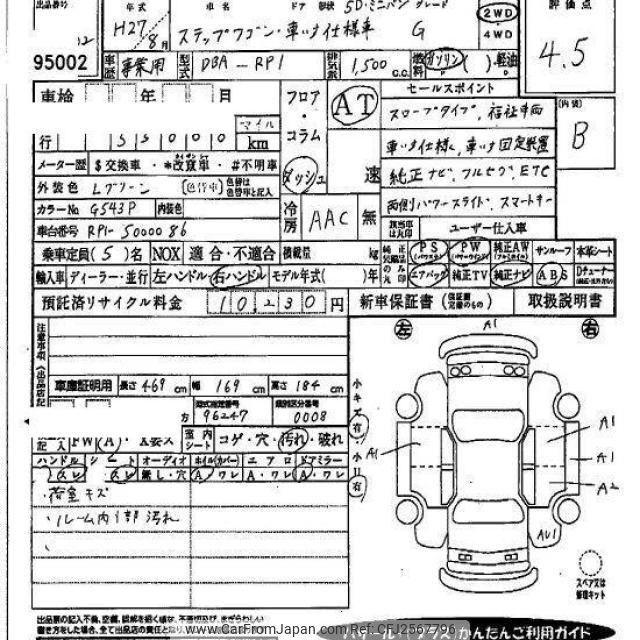 出品店(No) 年式 車名 ドア 形状 5D・ミニバン グレード 評価点
12 H27/8月 ステップワゴン・車いす仕様車 G 2WD 4WD 4.5
95002 車歴 事業用 型式 DBA-RP1 排気量 1,500 c.c. 燃料 ガソリン( )・軽油
車検 年 月 フロア・コラム ダッシュ AT 速 セールスポイント 内装 B
スロープタイプ、福祉車両
マイル
走行 55000 km 車いす仕様、車いす固定装置
メーター歴 $交換車・*改ざん車・#不明車 純正ナビ、フルセグ、ETC
外装色 Lグリーン (色替車) 色替は色替車と記入 両側パワースライド、スマートキー
カラーNo G543P 内装色 冷房 AAC 無
車台番号 RP1-5000086 該当車は丸印 ユーザー仕入車
乗車定員(5)名 NOX 適合・不適合 積載量 kg 純正装備品のみ丸印 PS PW 純正AW サンルーフ 本革シート
輸入車 ディーラー・並行 左ハンドル 右ハンドル モデル年式( )年 エアバック 純正TV 純正ナビ ABS Dチューナー
預託済リサイクル料金 10,230円 新車保証書 取扱説明書
注意事項(出品店記入)
左 A1 右
車庫証明用 長さ 469 cm 幅 169 cm 高さ 184 cm
型式指定番号 96247 類別区分番号 0008
小キズ 有 小凹 有
室内シート コゲ・穴・汚れ・破れ
ハンドル シート オーディオ ホイル(カバー) エアロ ドアミラー
スレ スレ 無し・穴 A・ワレ A・ワレ A・ワレ
・荷室キズ
・ルーム内1部汚れ
A1 A1 A1 A2 AU1
スペアは修理キット
出品票の記入不備、空欄、誤解を招く様な、不適切及び、まぎらわしい
書き方をした場合、全て出品店の責任となります
www.CarFromJapan.com Ref: CFJ2567796
かんたんご利用ガイド